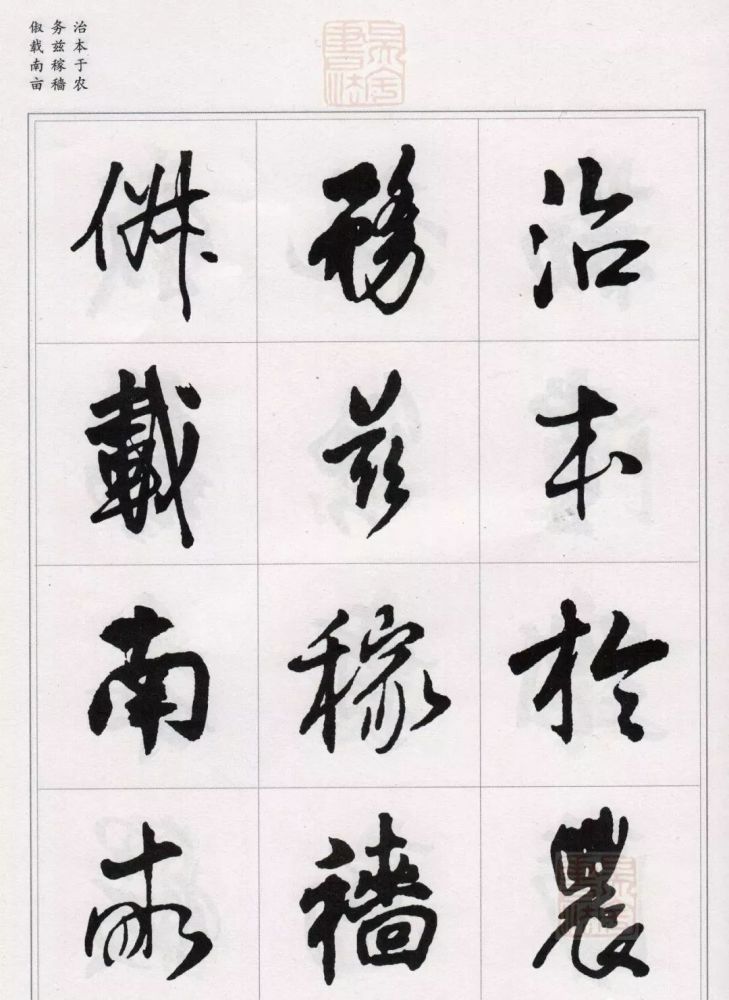 治本于农
务兹稼穑
俶载南亩
治本於農
務茲稼穡
俶載南畝